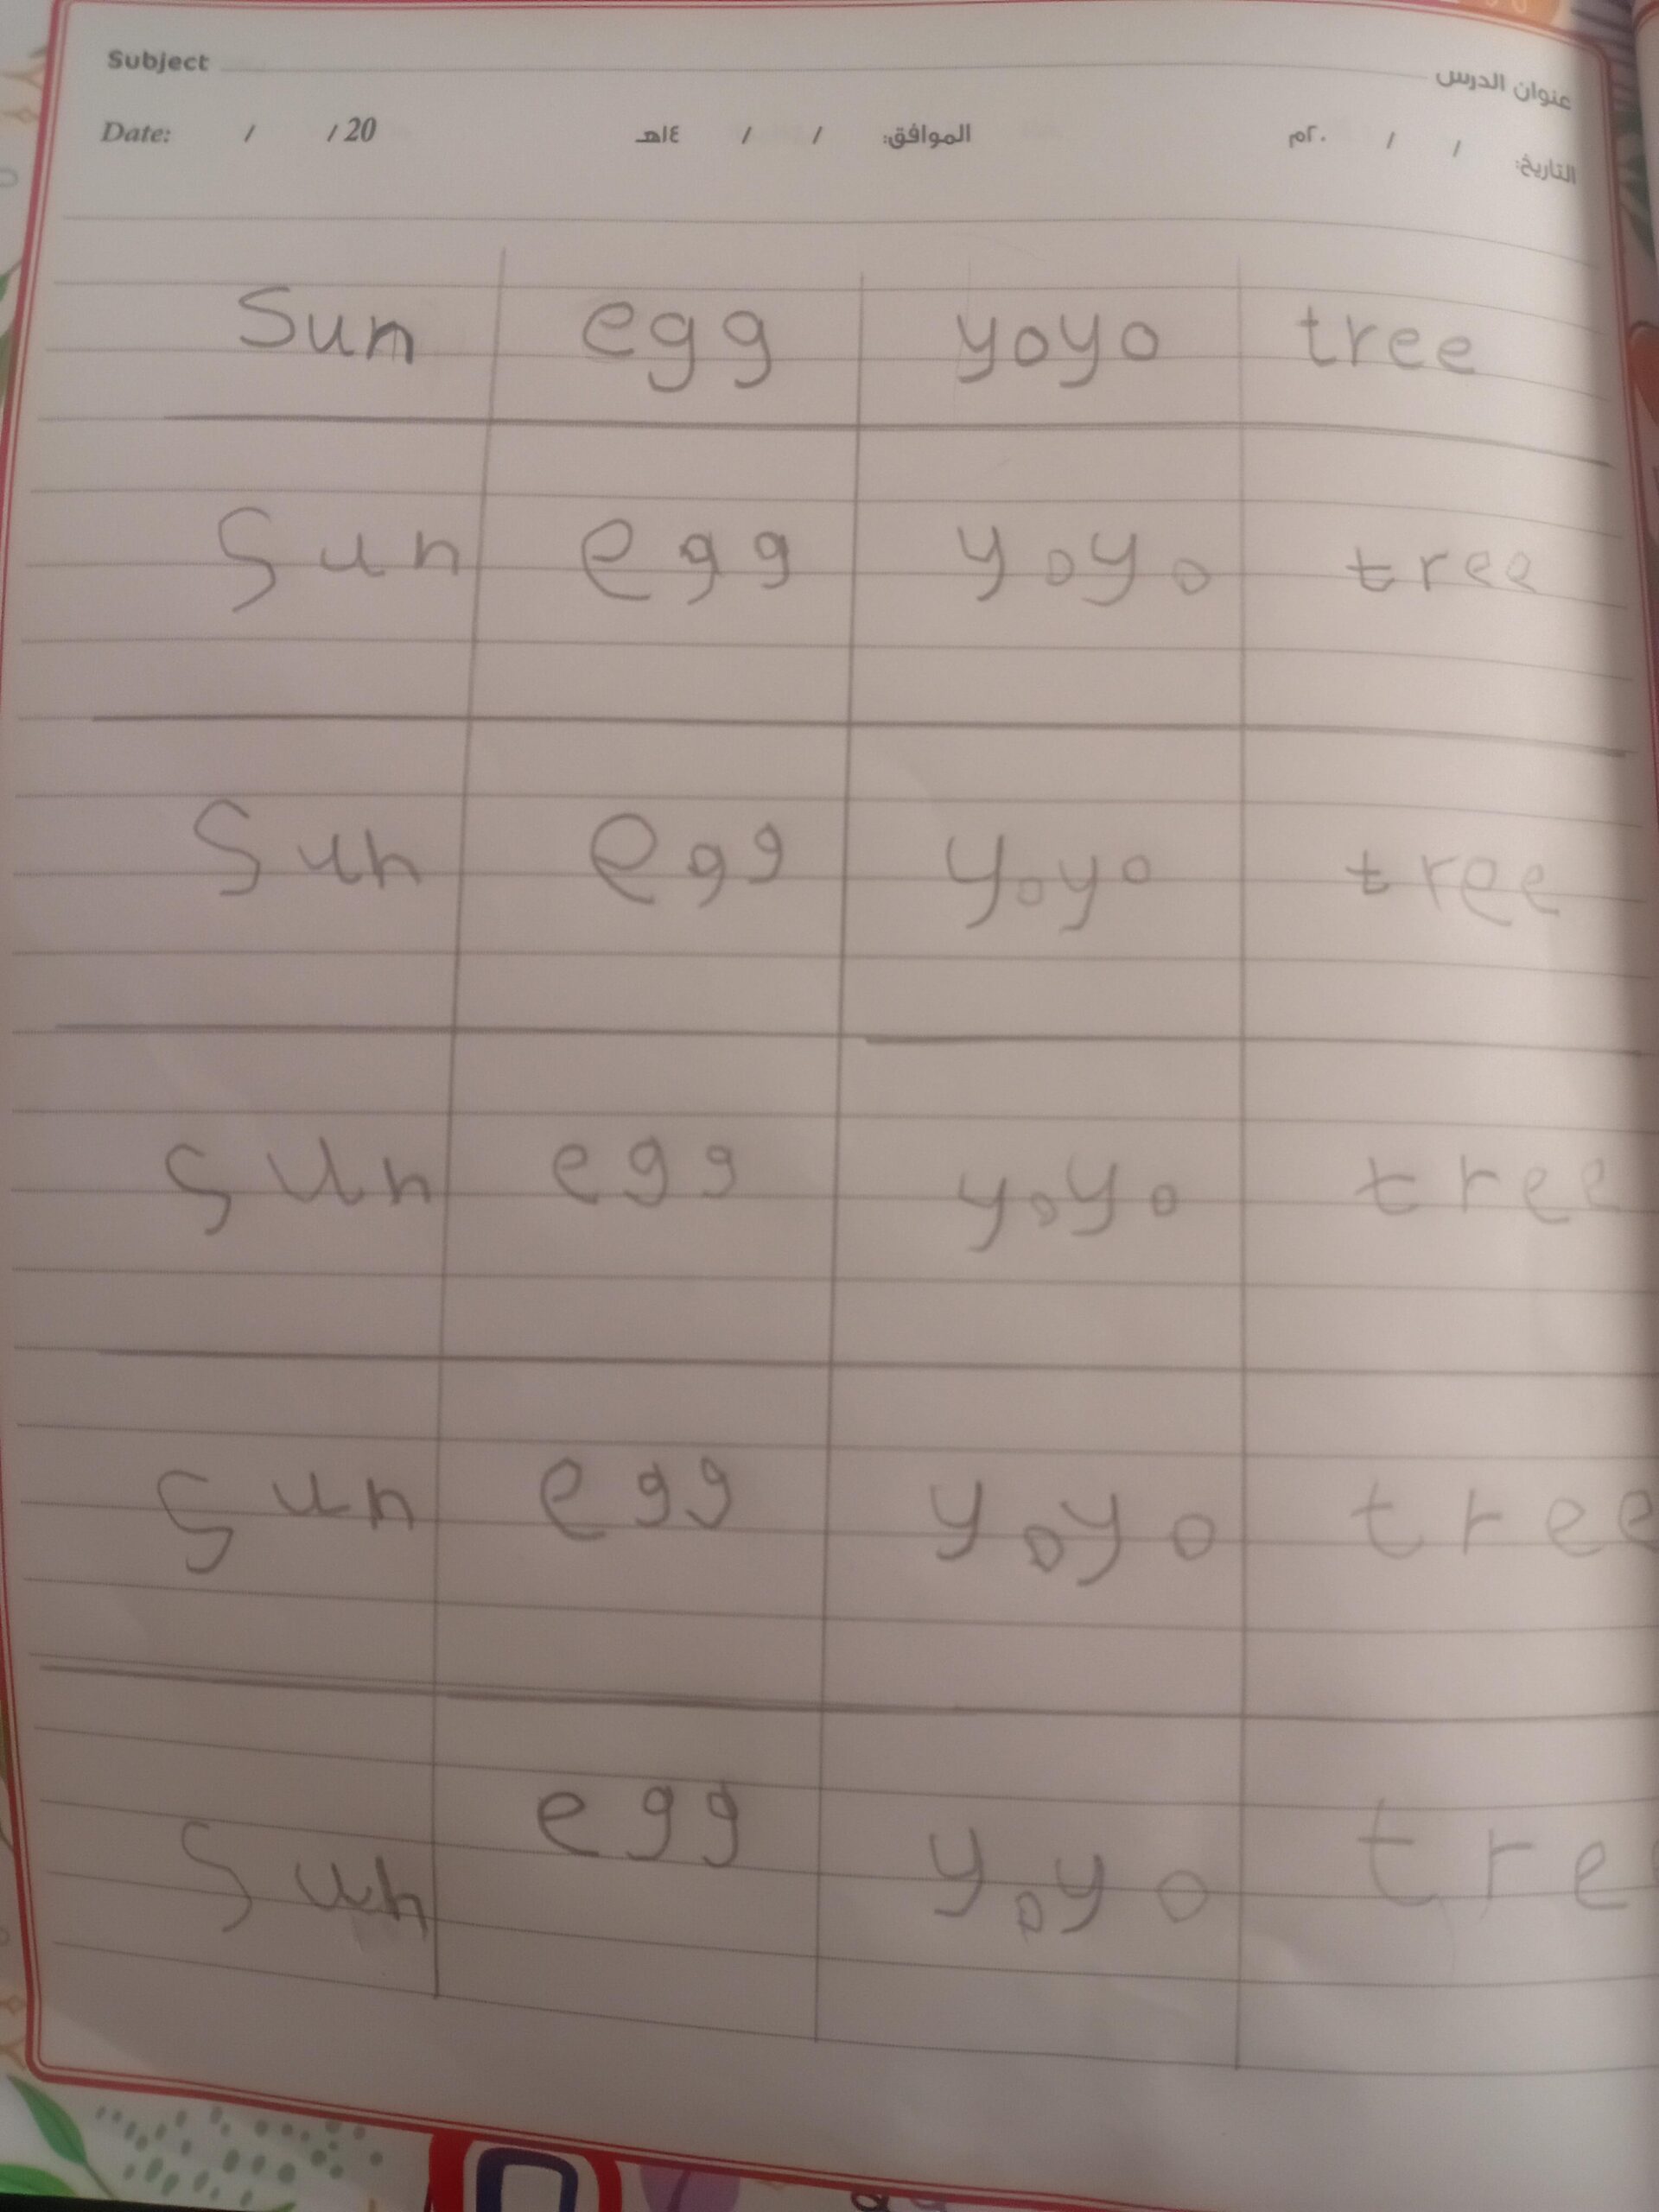 Subject عنوان الدرس
Date: / / 20 الموافق: / / ١٤هـ التاريخ: / / ٢٠م
Sun egg yoyo tree
Sun egg yoyo tree
Sun egg yoyo tree
Sun egg yoyo tree
Sun egg yoyo tree
Sun egg yoyo tre